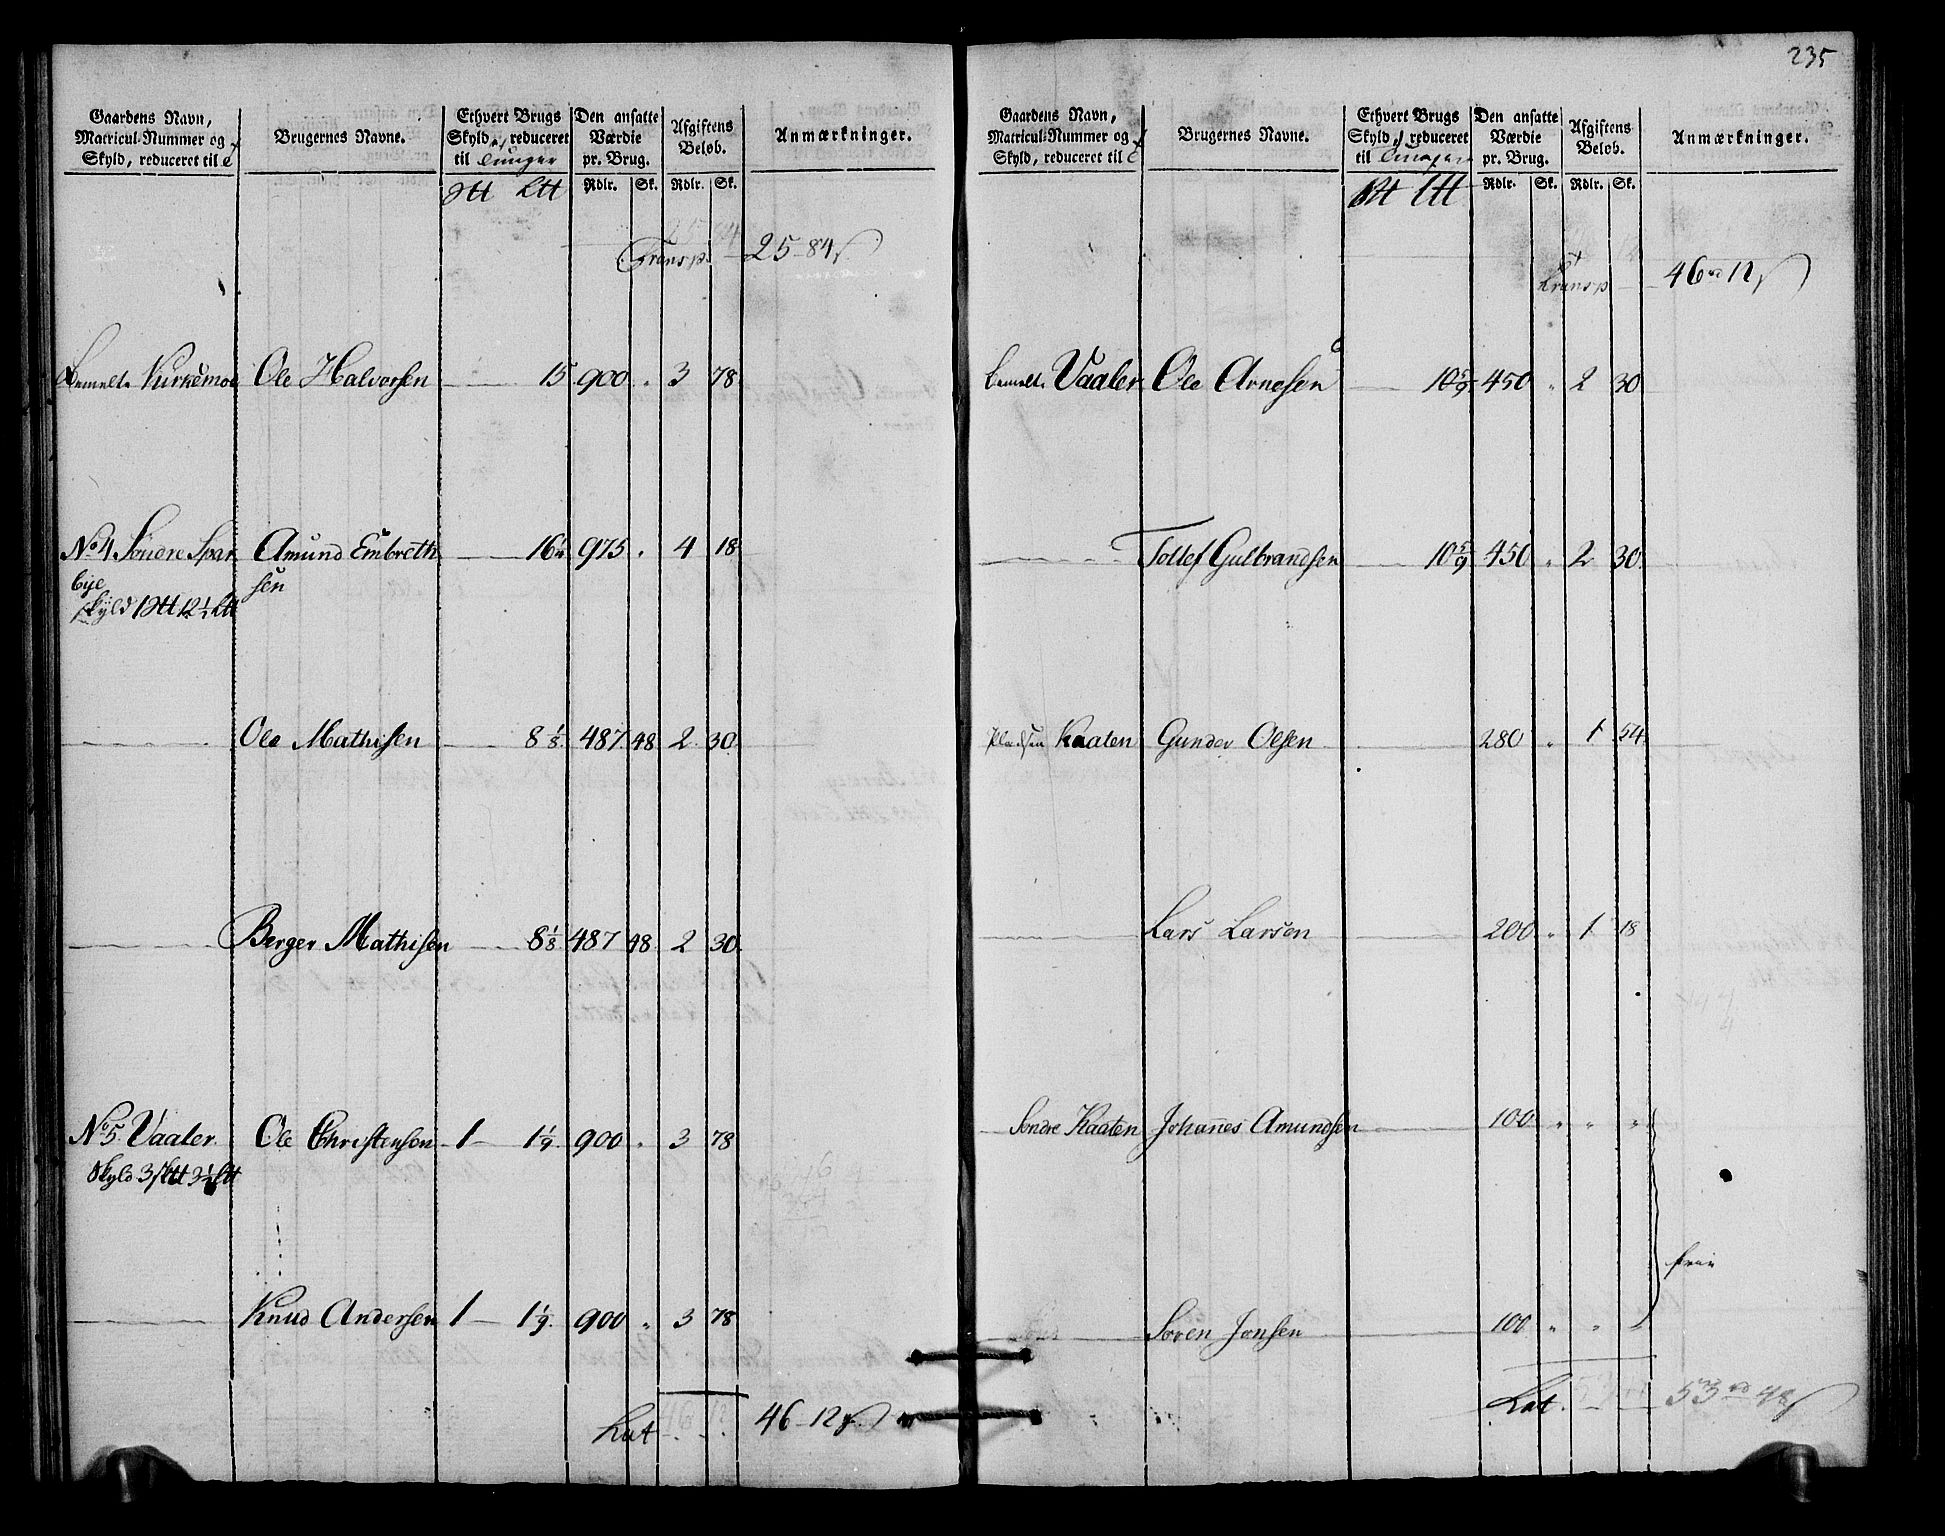 235
Gaardens Navn,
Matricul-Nummer og
Skyld, reduceret til
Brugernes Navne.
Ethvert Brugs
Skyld, reduceret
til Tunger
Den ansatte
Værdie
pr. Brug.
Afgiftens
Beløb.
Anmærkninger.
Rdlr. Sk. Rdlr. Sk.
Transp. 25 - 84
Bemeldte Kurkemoe Ole Halvorsen 15 900 " 3 78
No 4 Søndre Spar Amund Embreth 975 " 4 18
bye sen
skyld 12½
Ole Mathisen 8 1/8 487 48 2 30
Berger Mathisen 8 1/8 487 48 2 30
No 5 Vaaler Ole Christensen 1 1 1/9 900 " 3 78
Skyld 3
Knud Andersen 1 1 1/9 900 " 3 78
Lat 46 - 12
Gaardens Navn,
Matricul-Nummer og
Skyld, reduceret til
Brugernes Navne.
Ethvert Brugs
Skyld, reduceret
til Tunger
Den ansatte
Værdie
pr. Brug.
Afgiftens
Beløb.
Anmærkninger.
Rdlr. Sk. Rdlr. Sk.
Transp 46 rd 12
bemelte Vaaler Ole Arnesen 10 5/9 450 " 2 30
Tollef Gulbrandsen 10 5/9 450 " 2 30
Pladsen Kaaten Gunder Olsen 280 " 1 54
Lars Larsen 200 " 1 18
Søndre Kaaten Johannes Amundsen 100 " " "
frie
Soren Jonsen 100 " " "
Lat. 53 rd 48